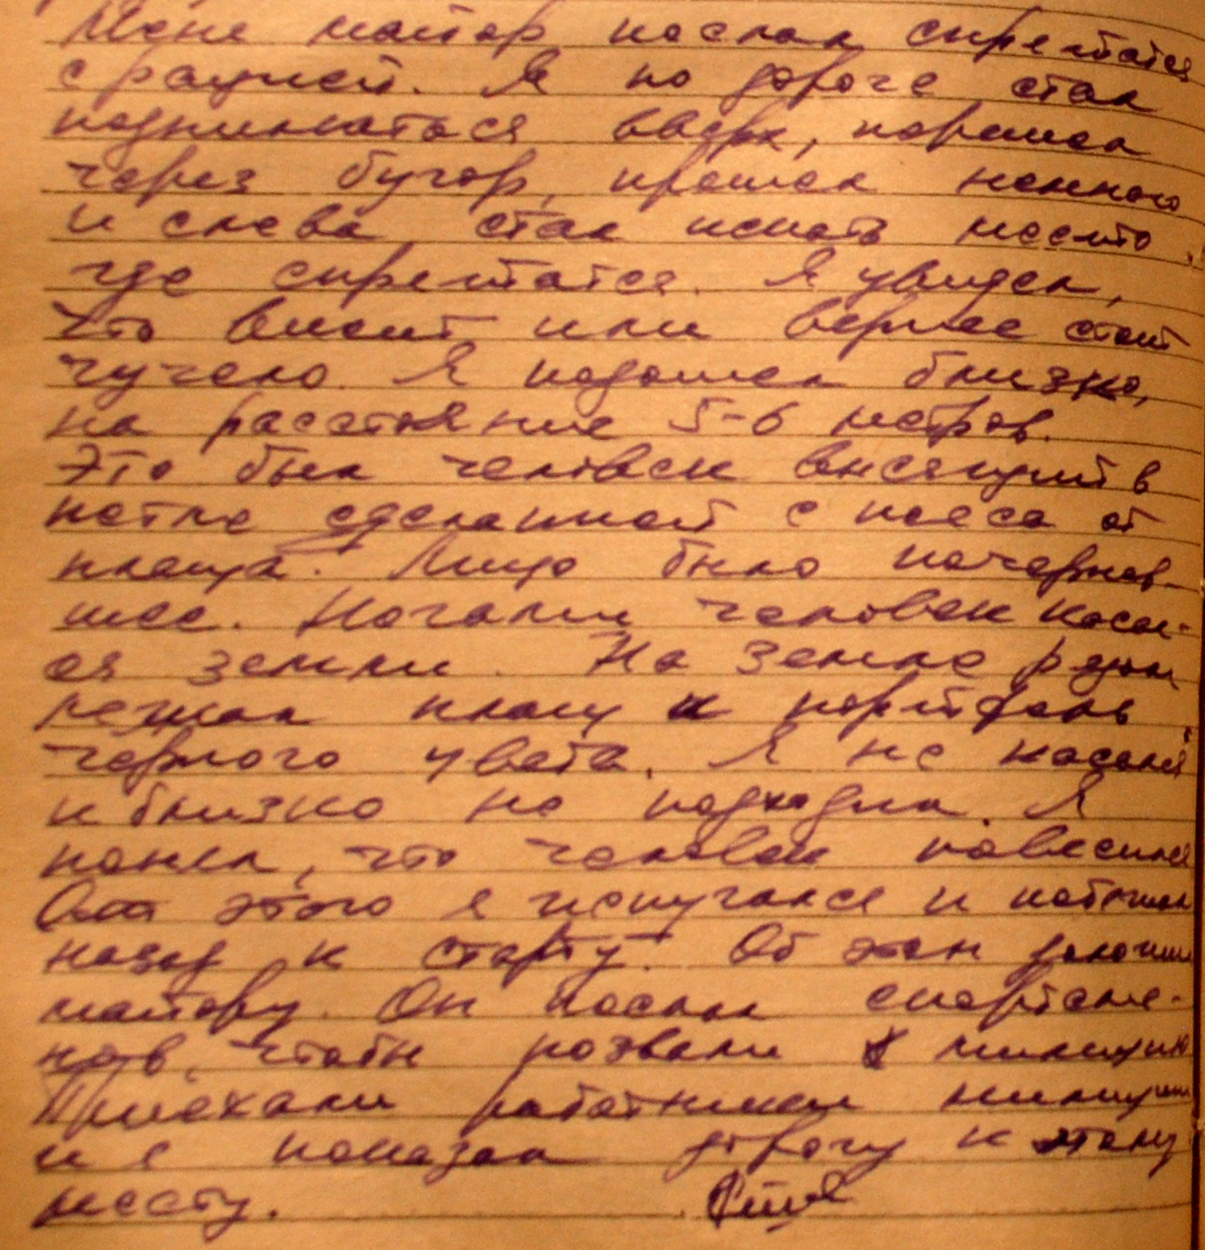 Меня майор послал спрятатся
с рацией. Я по дороге стал
подниматься вверх, перешел
через бугор, прошел немного
и снова стал искать место
где спрятатся. Я увидел,
что висит или вернее стоит
чучело. Я подошел близко,
на расстояние 5-6 метров.
Это был человек висящий в
петле сделанной с пояса от
плаща. Лицо было почернев-
шее. Ногами человек касал-
ся земли. На земле рядом
лежал плащ и портфель
черного цвета. Я не касался
и близко не подходил. Я
понял, что человек повесился
От этого я испугался и побежал
назад к старту. Об этом доложил
майору. Он послал спортсме-
нов, чтобы позвали милицию
Приехали работники милиции
и я показал дорогу к этому
месту.